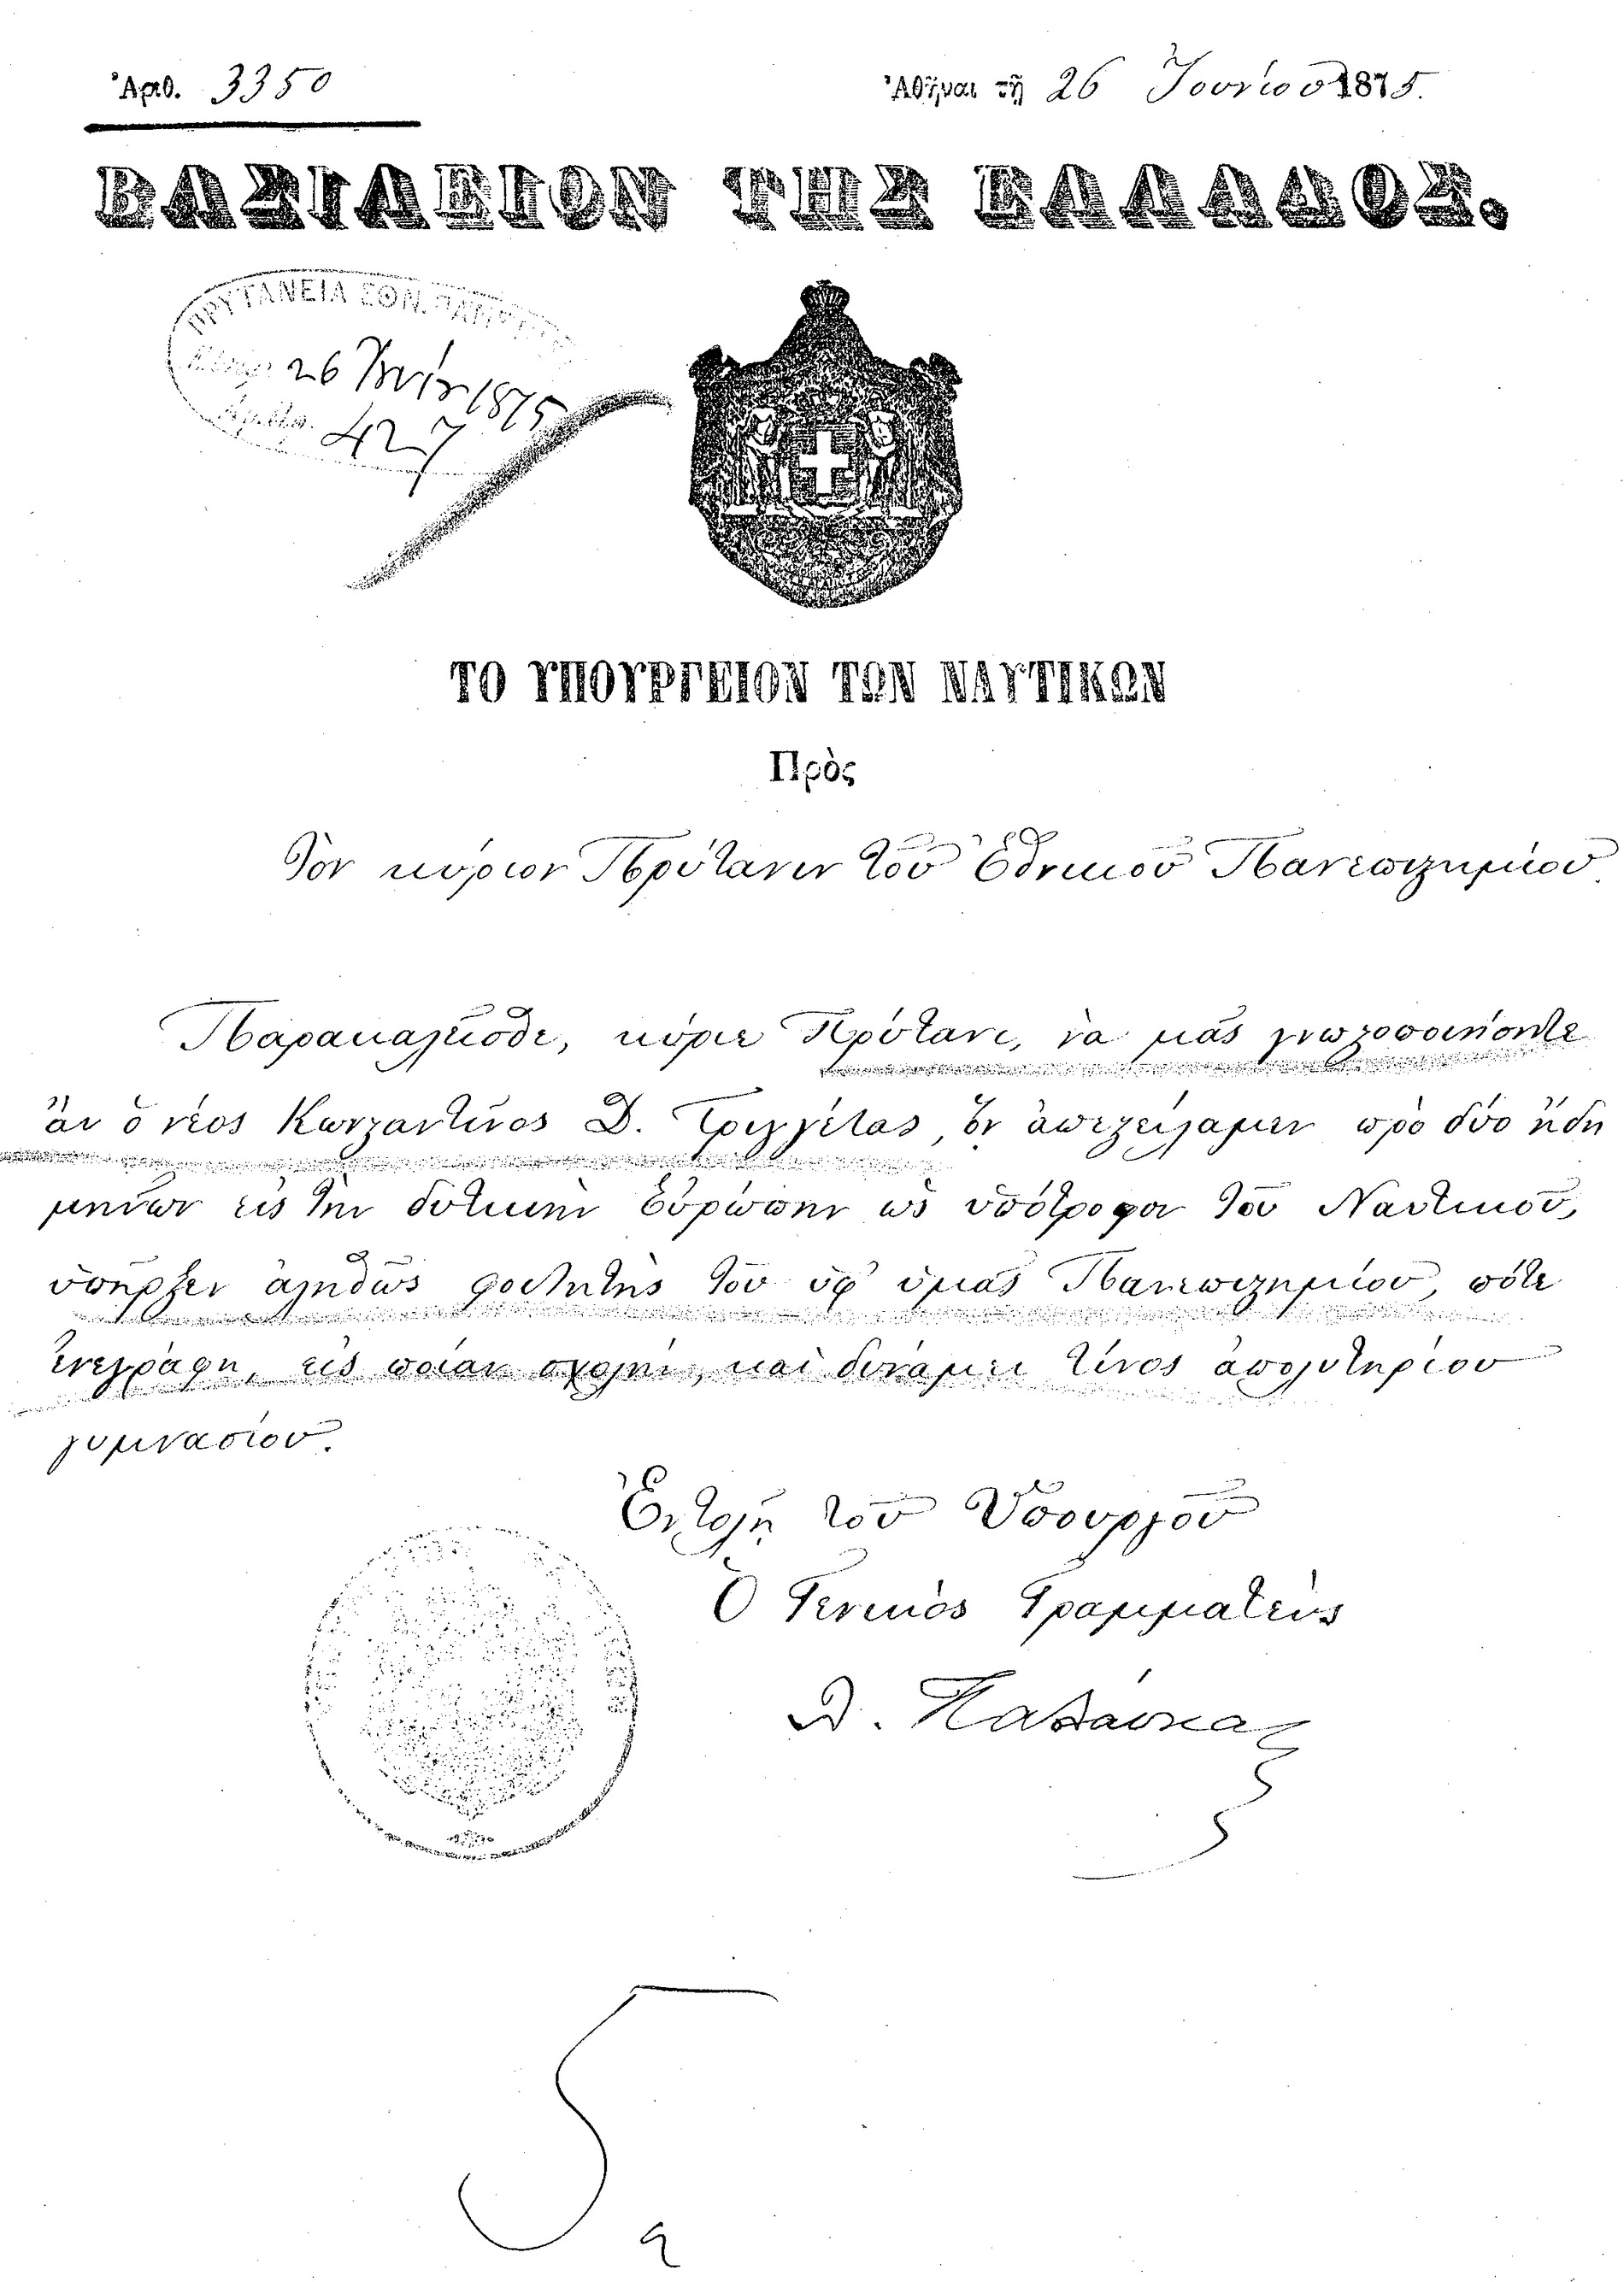 Ἀριθ. 3350
Ἀθῆναι τῇ 26 Ἰουνίου 1875.
ΒΑΣΙΛΕΙΟΝ ΤΗΣ ΕΛΛΑΔΟΣ.
ΠΡΥΤΑΝΕΙΑ ΕΘΝ. ΠΑΝΕΠΙΣΤ
26 1875
427
ΤΟ ΥΠΟΥΡΓΕΙΟΝ ΤΩΝ ΝΑΥΤΙΚΩΝ
Πρὸς
Τὸν κύριον Πρύτανιν τοῦ Ἐθνικοῦ Πανεπιστημίου
Παρακαλεῖσθε, κύριε Πρύτανι, νὰ μᾶς γνωστοποιήσητε
ἂν ὁ νέος Κωνσταντῖνος Δ. ὃν ἀπεστείλαμεν πρὸ δύο ἤδη
μηνῶν εἰς τὴν δυτικὴν Εὐρώπην ὡς ὑπότροφον τοῦ Ναυτικοῦ,
ὑπῆρξεν ἀληθῶς φοιτητὴς τοῦ ὑφ' ὑμᾶς Πανεπιστημίου, πότε
ἐνεγράφη, εἰς ποίαν σχολὴν, καὶ δυνάμει τίνος ἀπολυτηρίου
γυμνασίου.
Ἐντολῇ τοῦ Ὑπουργοῦ
Ὁ Γενικὸς Γραμματεὺς